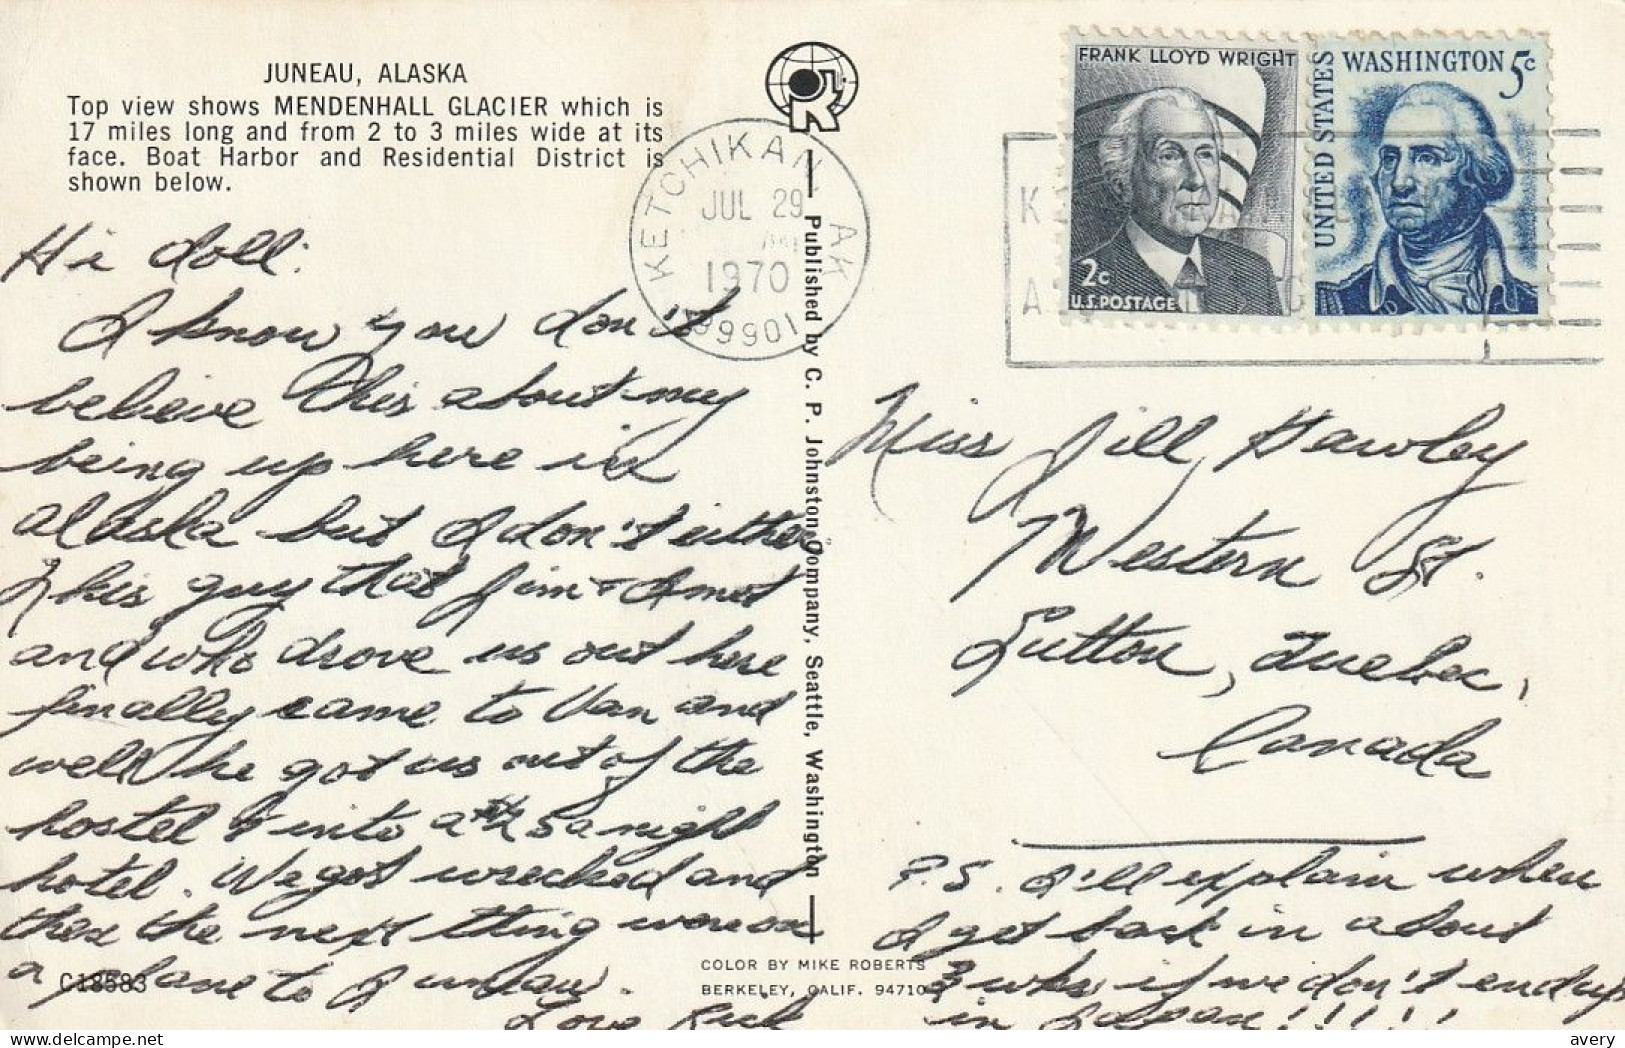 JUNEAU, ALASKA
Top view shows MENDENHALL GLACIER which is
17 miles long and from 2 to 3 miles wide at its
face. Boat Harbor and Residential District is
shown below.
Hi doll:
I know you don't
believe this about my
being up here in
alaska but I don't either
This guy that Jim + I met
and who drove us out here
finally came to Van and
well he got us out of the
hostel & into a 5 a night
hotel. We got wrecked and
then the next thing were on
a plane to Juneau.
Love Rick
C18583
R
KETCHIKAN AK
JUL 29
1970
99901
Published by C. P. Johnston Company, Seattle, Washington
COLOR BY MIKE ROBERTS
BERKELEY, CALIF. 94710
FRANK LLOYD WRIGHT
2c
U.S. POSTAGE
UNITED STATES
WASHINGTON 5c
Miss Jill Hawley
Western St.
Sutton, Quebec,
Canada
P.S. I'll explain when
I get back in about
3 wks if we don't end up
in Japan!!!!!
avery
delcampe.net